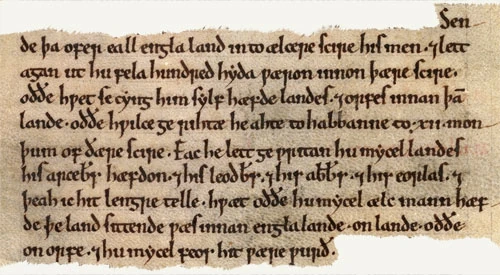 Sen
de þa ofer eall engla land into ælcere scire his men. ⁊ lett
agan ut hu fela hundred hyda wæron innon þære scire.
oððe hwet se cyng him sylf hæfde landes. ⁊ orfes innan þā
lande. oððe hwilce gerihtæ he ahte to habbanne to .xii. mon
þum of ðære scire. Eac he lett gewritan hu mycel landes
his arcebr̄ hæfdon. ⁊ his leodbr̄. ⁊ his abbr̄. ⁊ his eorlas. ⁊
þeah ic hit lengre telle. hwæt oððe hu mycel ælc mann hæf
de þe land sittende wæs innan engla lande. on lande. oððe
on orfe. ⁊ hu mycel feos hit wære wurð.